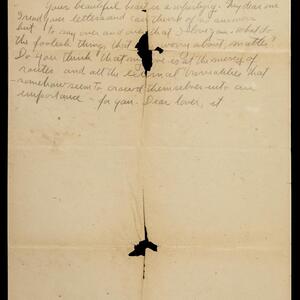 Your beautiful heart is My dear one
I read your letters and can think of no answers
but to say over and over that I love you. What do
the foolish things, that worry about, matter?
Do you think that my love is at the mercy of
routes and all the external trivialities that
somehow seem to crowd themselves into an
importance - for you. Dear lover, it